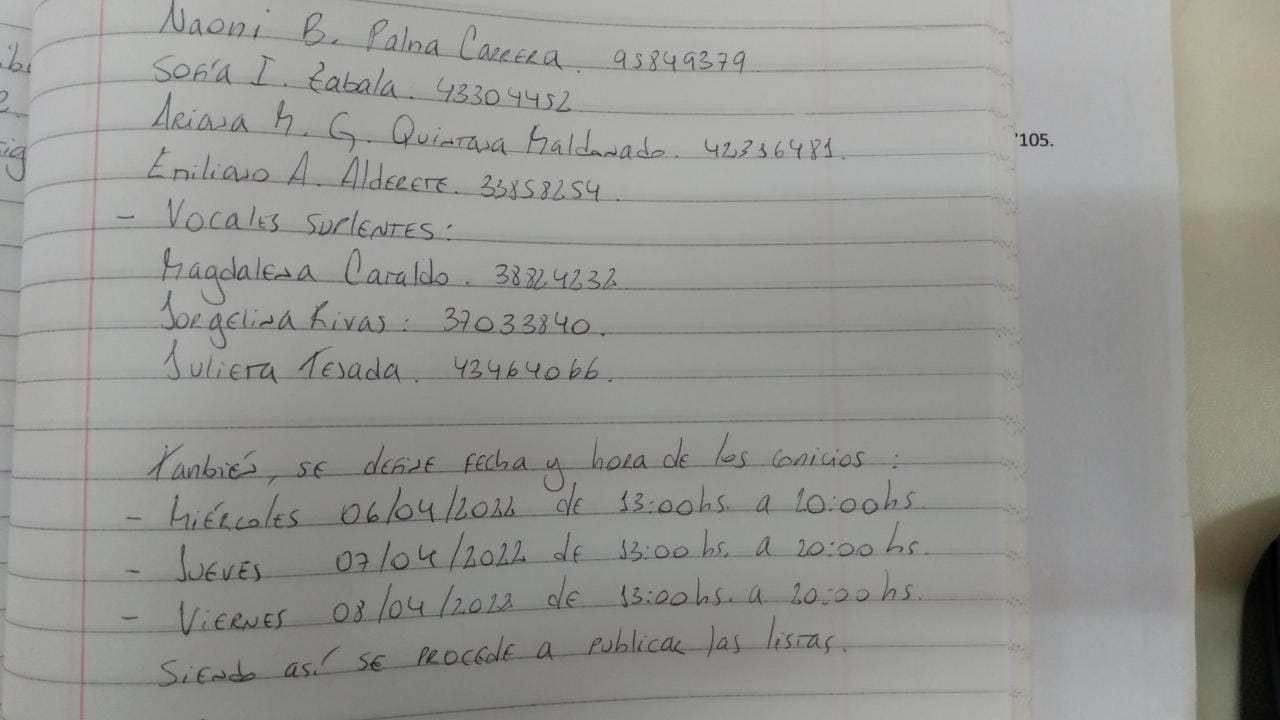 Naomi B. Palma Carrera. 95849379
Sofía I. Zabala. 43304452
Ariana M. G. Quintana Maldonado. 42336481.
'105.
Emiliano A. Alderete. 33858254.
- Vocales suplentes:
Magdalena Caraldo. 38824232
Jorgelina Rivas: 37033840.
Julieta Tejada. 43464066.
También, se define fecha y hora de los comicios:
- Miércoles 06/04/2022 de 13:00hs. a 20:00hs.
- Jueves 07/04/2022 de 13:00 hs. a 20:00 hs.
- Viernes 08/04/2022 de 13:00hs. a 20:00 hs.
Siendo así se procede a publicar las listas.